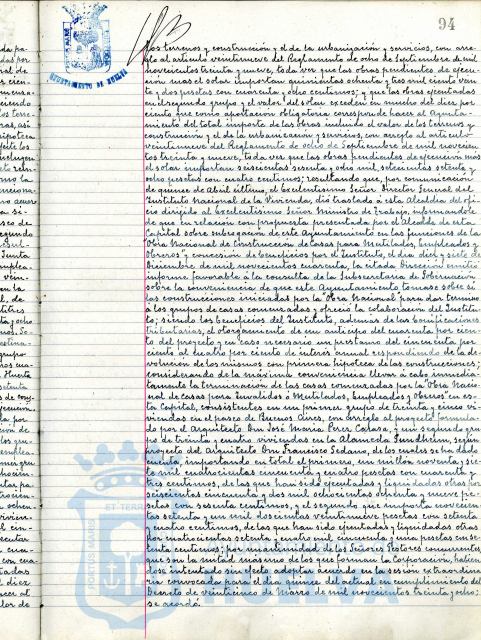 94
los terrenos y construcción y el de la urbanización y servicios, con arre-
glo al artículo veintinueve del Reglamento de ocho de Septiembre de mil
novecientos treinta y nueve, toda vez que las obras pendientes de ejecu-
ción mas el solar importan quinientas ochenta y tres mil ciento vein-
te y dos pesetas con cuarenta y ocho centimos; y que las obras ejecutadas
en el segundo grupo y el valor del solar exceden en mucho del diez por
ciento que como aportación obligatoria corresponde hacer al Ayunta-
miento del total importe de las obras incluido el valor de los terrenos y
construcción y el de la urbanización y servicios, con arreglo al articulo
veintinueve del Reglamento de ocho de Septiembre de mil novecien-
tos treinta y nueve, toda vez que las obras pendientes de ejecución mas
el solar importan seiscientas sesenta y ocho mil, setecientas setenta y
ocho pesetas con cuatro centimos; resultando que, por comunicación
de quince de Abril último, el Excelentísimo Señor Director General del
Instituto Nacional de la Vivienda, dió traslado a esta Alcaldía del ofi-
cio dirigido al Excelentísimo Señor Ministro de Trabajo, informandole
de que en relación con propuesta presentada por el Alcalde de esta
Capital sobre subrogación de este Ayuntamiento en las funciones de la
Obra Nacional de Construcción de Casas para Mutilados, Empleados y
Obreros y concesión de beneficios por el Instituto, el dia diez y siete de
Diciembre de mil novecientos cuarenta, la citada Dirección emitió
informe favorable a la consulta de la Subsecretaria de Gobernación
sobre la conveniencia de que este Ayuntamiento tomase sobre si
las construcciones iniciadas por la Obra Nacional para dar termino
á los grupos de casas comenzadas y ofreció la colaboración del Institu-
to; siendo los beneficios del Instituto, ademas de las bonificaciones
tributarias, el otorgamiento de un anticipo del cuarenta por cien-
to del proyecto y en caso necesario un prestamo del cincuenta por
ciento al cuatro por ciento de interés anual respondiendo de la de-
volución de los mismos con primera hipoteca de las construcciones;
considerando de la máxima conveniencia llevar á cabo inmedia-
tamente la terminación de las casas comenzadas por la Obra Nacio-
nal de casas para Invalidos ó Mutilados, Empleados y Obreros en es-
ta Capital, consistentes en un primer grupo de treinta y cinco vi-
viendas en el paseo de Buenos Aires, con arreglo al proyecto formula-
do por el Arquitecto Don José Maria Perez Carasa, y un segundo gru-
po de treinta y cuatro viviendas en la Alameda Sundheim, según
proyecto del Arquitecto Don Francisco Sedano, de los cuales se ha dado
cuenta, importando en total el primero, un millón noventa y sie-
te mil cuatrocientas cincuenta y cuatro pesetas con cuarenta y
tres centimos, de las que han sido ejecutadas y liquidadas obras por
seiscientas cincuenta y dos mil ochocientas ochenta y nueve pe-
setas con sesenta centimos, y el segundo que importa novecien-
tas setenta y un mil doscientas veintinueve pesetas con setenta
y cuatro centimos, de las que han sido ejecutadas y liquidadas obras
por cuatrocientas setenta y cuatro mil cincuenta y una pesetas con se-
tenta centimos; por unanimidad de los Señores Gestores concurrentes,
que son la mitad más uno de los que forman la Corporación, habien-
dose intentado sin efecto adoptar acuerdo en la sesión extraordina-
ria convocada para el dia quince del actual en cumplimiento del
Decreto de veinticinco de Marzo de mil novecientos treinta y ocho;
se acordó: